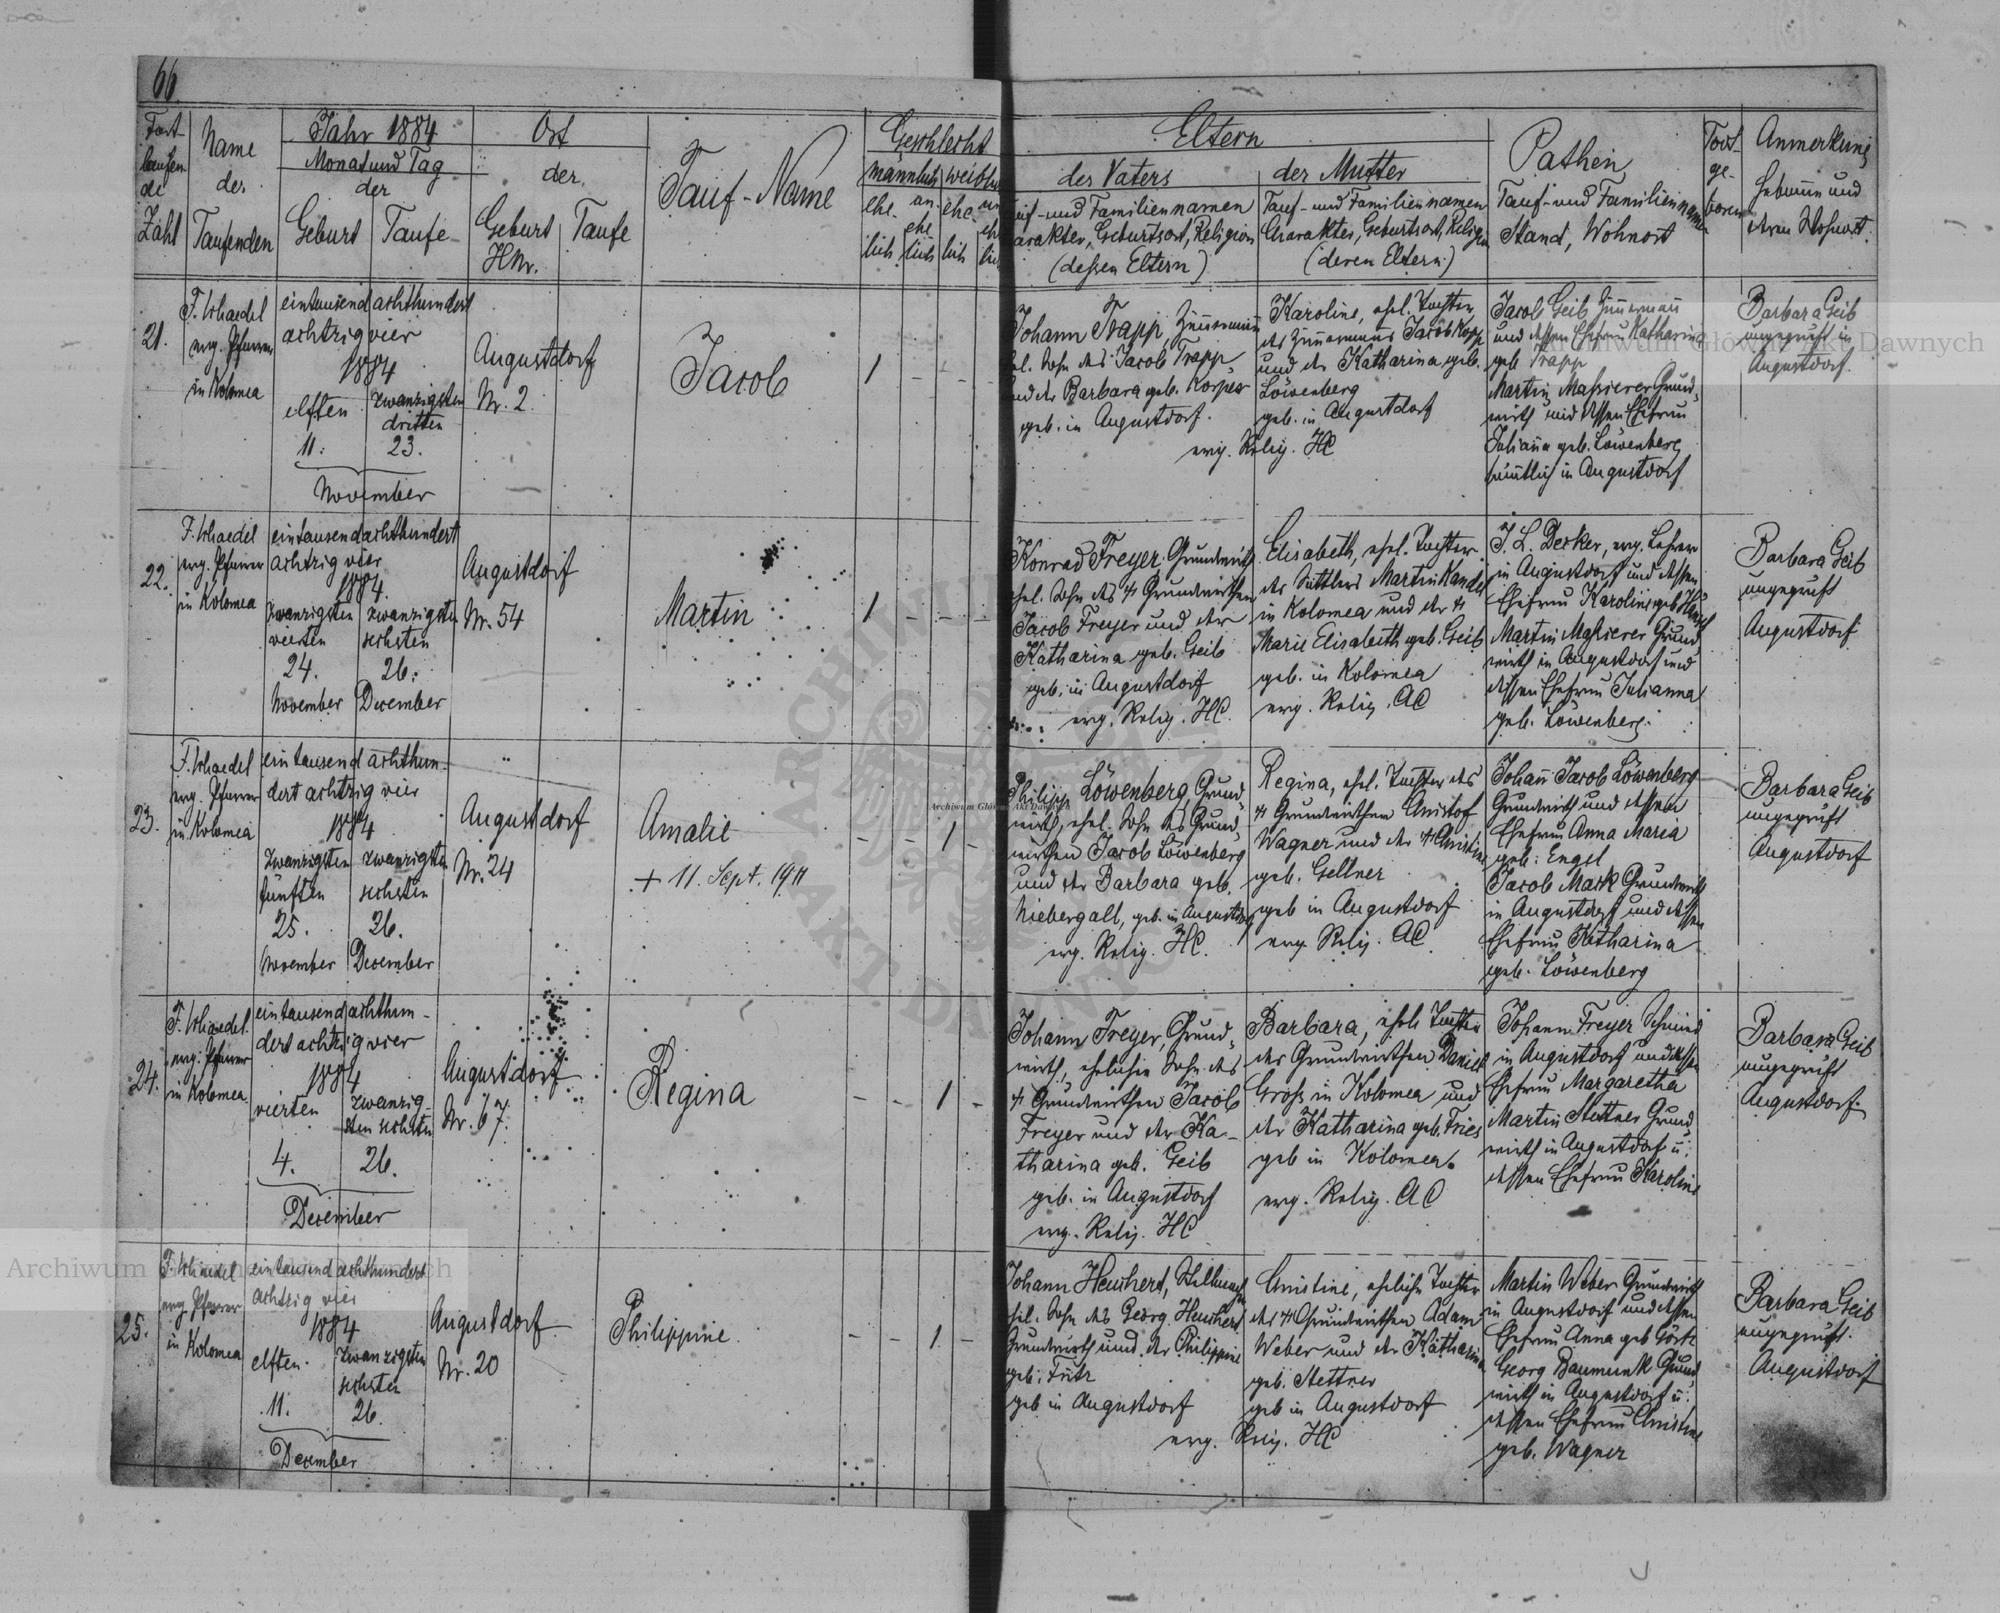 66.
Fort-
laufen
de
Zahl
Name
der
Taufenden
Jahr 1884
Monat und Tag
der
Geburt
Taufe
Ort
der
Geburt
HNr.
Taufe
Tauf-Name
Geschlecht
männlich
weiblich
ehe-
lich
un-
ehe
lich
ehe-
lich
Eltern
des Vaters
Tauf- und Familiennamen
Charakter, Geburtsort, Religion
(deßen Eltern)
der Mutter
Tauf- und Familiennamen
Charakter, Geburtsort, Religion
(deren Eltern)
Pathen
Tauf- und Familiennamen
Stand, Wohnort
Todt-
ge-
boren
Anmerkung
Hebamme und
deren Wohnort.
21.
F. Schaedel
evg. Pfarrer
in Kolomea
eintausend achthundert
achtzig vier
1884
elften
11.
zwanzigsten
dritten
23.
November
Augustdorf
Nr. 2.
Jacob
1 - - -
Johann Trapp Zimmermann
ehl. Sohn des Jacob Trapp
und der Barbara geb. Korper
geb. in Augustdorf.
Karoline, ehel. Tochter
des Zimmermanns Jacob Kopp
und der Katharina geb.
Löwenberg
geb. in Augustdorf
evg. Relig. HC
Jacob Geib Zimmermann
und dessen Ehefrau Katharina
geb Trapp
Martin Massierer Grund-
wirth und dessen Ehefrau
Julianna geb. Löwenberg
sämmtlich in Augustdorf
Barbara Geib
ungeprüft in
Augustdorf.
22.
F. Schaedel
evg. Pfarrer
in Kolomea
eintausend achthundert
achtzig vier
1884.
zwanzigsten
vierten
24.
November
zwanzigsten
sechsten
26.
December
Augustdorf
Nr. 54
Martin
1 - - -
Konrad Freyer Grundwirth
ehel. Sohn des # Grundwirthen
Jacob Freyer und der
Katharina geb. Geib
geb. in Augustdorf
evg. Relig. HC.
Elisabeth, ehel. Tochter
des Sattlers Martin Kandel
in Kolomea und der #
Marie Elisabeth geb. Geib
geb. in Kolomea
evg. Relig. AC
J. L. Decker, evg. Lehrer
in Augustdorf und dessen
Ehefrau Karoline geb
Martin Massierer Grund
wirth in Augustdorf und
dessen Ehefrau Julianna
geb. Löwenberg.
Barbara Geib
ungeprüft
Augustdorf
23.
F. Schaedel
evg. Pfarrer
in Kolomea
eintausend achthun-
dert achtzig vier
1884
zwanzigsten
fünften
25.
November
zwanzigsten
sechsten
26.
December
Augustdorf
Nr. 24
Amalie
+ 11. Sept. 1911
- - 1 -
Philipp Löwenberg, Grund-
wirth, ehel. Sohn des Grund-
wirthen Jacob Löwenberg
und der Barbara geb.
Niebergall, geb. in Augustdorf
evg. Relig. HC.
Regina, ehel. Tochter des
# Grundwirthen Christof
Wagner und der # Christine
geb. Gellner
geb in Augustdorf
evg. Relig. AC
Johann Jacob Löwenberg
Grundwirth und dessen
Ehefrau Anna Maria
geb. Engel
Jacob Mark Grundwirth
in Augustdorf und dessen
Ehefrau Katharina
geb. Löwenberg
Barbara Geib
ungeprüft
Augustdorf
24.
F. Schaedel.
evg. Pfarrer
in Kolomea
eintausend achthun-
dert achtzig vier
1884
vierten
4.
zwanzig-
sten sechsten
26.
December
Augustdorf
Nr. 67.
Regina
- - 1 -
Johann Freyer, Grund-
wirth, ehelicher Sohn des
# Grundwirthen Jacob
Freyer und der Ka-
tharina geb. Geib
geb. in Augustdorf
evg. Relig. HC
Barbara, ehel Tochter
des Grundwirthen Daniel
Groß in Kolomea und
der Katharina geb. Fries
geb in Kolomea.
evg. Relig. AC
Johann Freyer Schmied
in Augustdorf und dessen
Ehefrau Margaretha
Martin Stettner Grund
wirth in Augustdorf u.
dessen Ehefrau Karoline
Barbara Geib
ungeprüft
Augustdorf.
25.
F. Schaedel
evg. Pfarrer
in Kolomea
eintausend achthundert
achtzig vier
1884
elften.
11.
zwanzigsten
sechsten
26.
December
Augustdorf
Nr. 20
Philippine.
- - 1. -
Johann Heuchert,
ehel. Sohn des Georg Heuchert
Grundwirth und der Philippine
geb.
geb in Augustdorf
Christine, eheliche Tochter
des # Grundwirthen Adam
Weber und der Katharina
geb. Stettner
geb in Augustdorf
evg. Relig. HC
Martin Weber Grundwirth
in Augustdorf und dessen
Ehefrau Anna geb
Georg Baumunk Grund
wirth in Augustdorf u.
dessen Ehefrau Christine
geb. Wagner
Barbara Geib
ungeprüft.
Augustdorf
Archiwum Główne Akt Dawnych
Archiwum Główne Akt Dawnych
Archiwum Główne Akt Dawnych